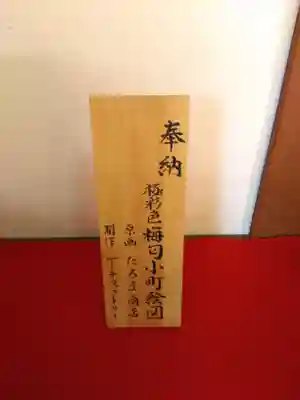 奉納
極彩色梅匂小町絵図
原画 だるま商店
制作